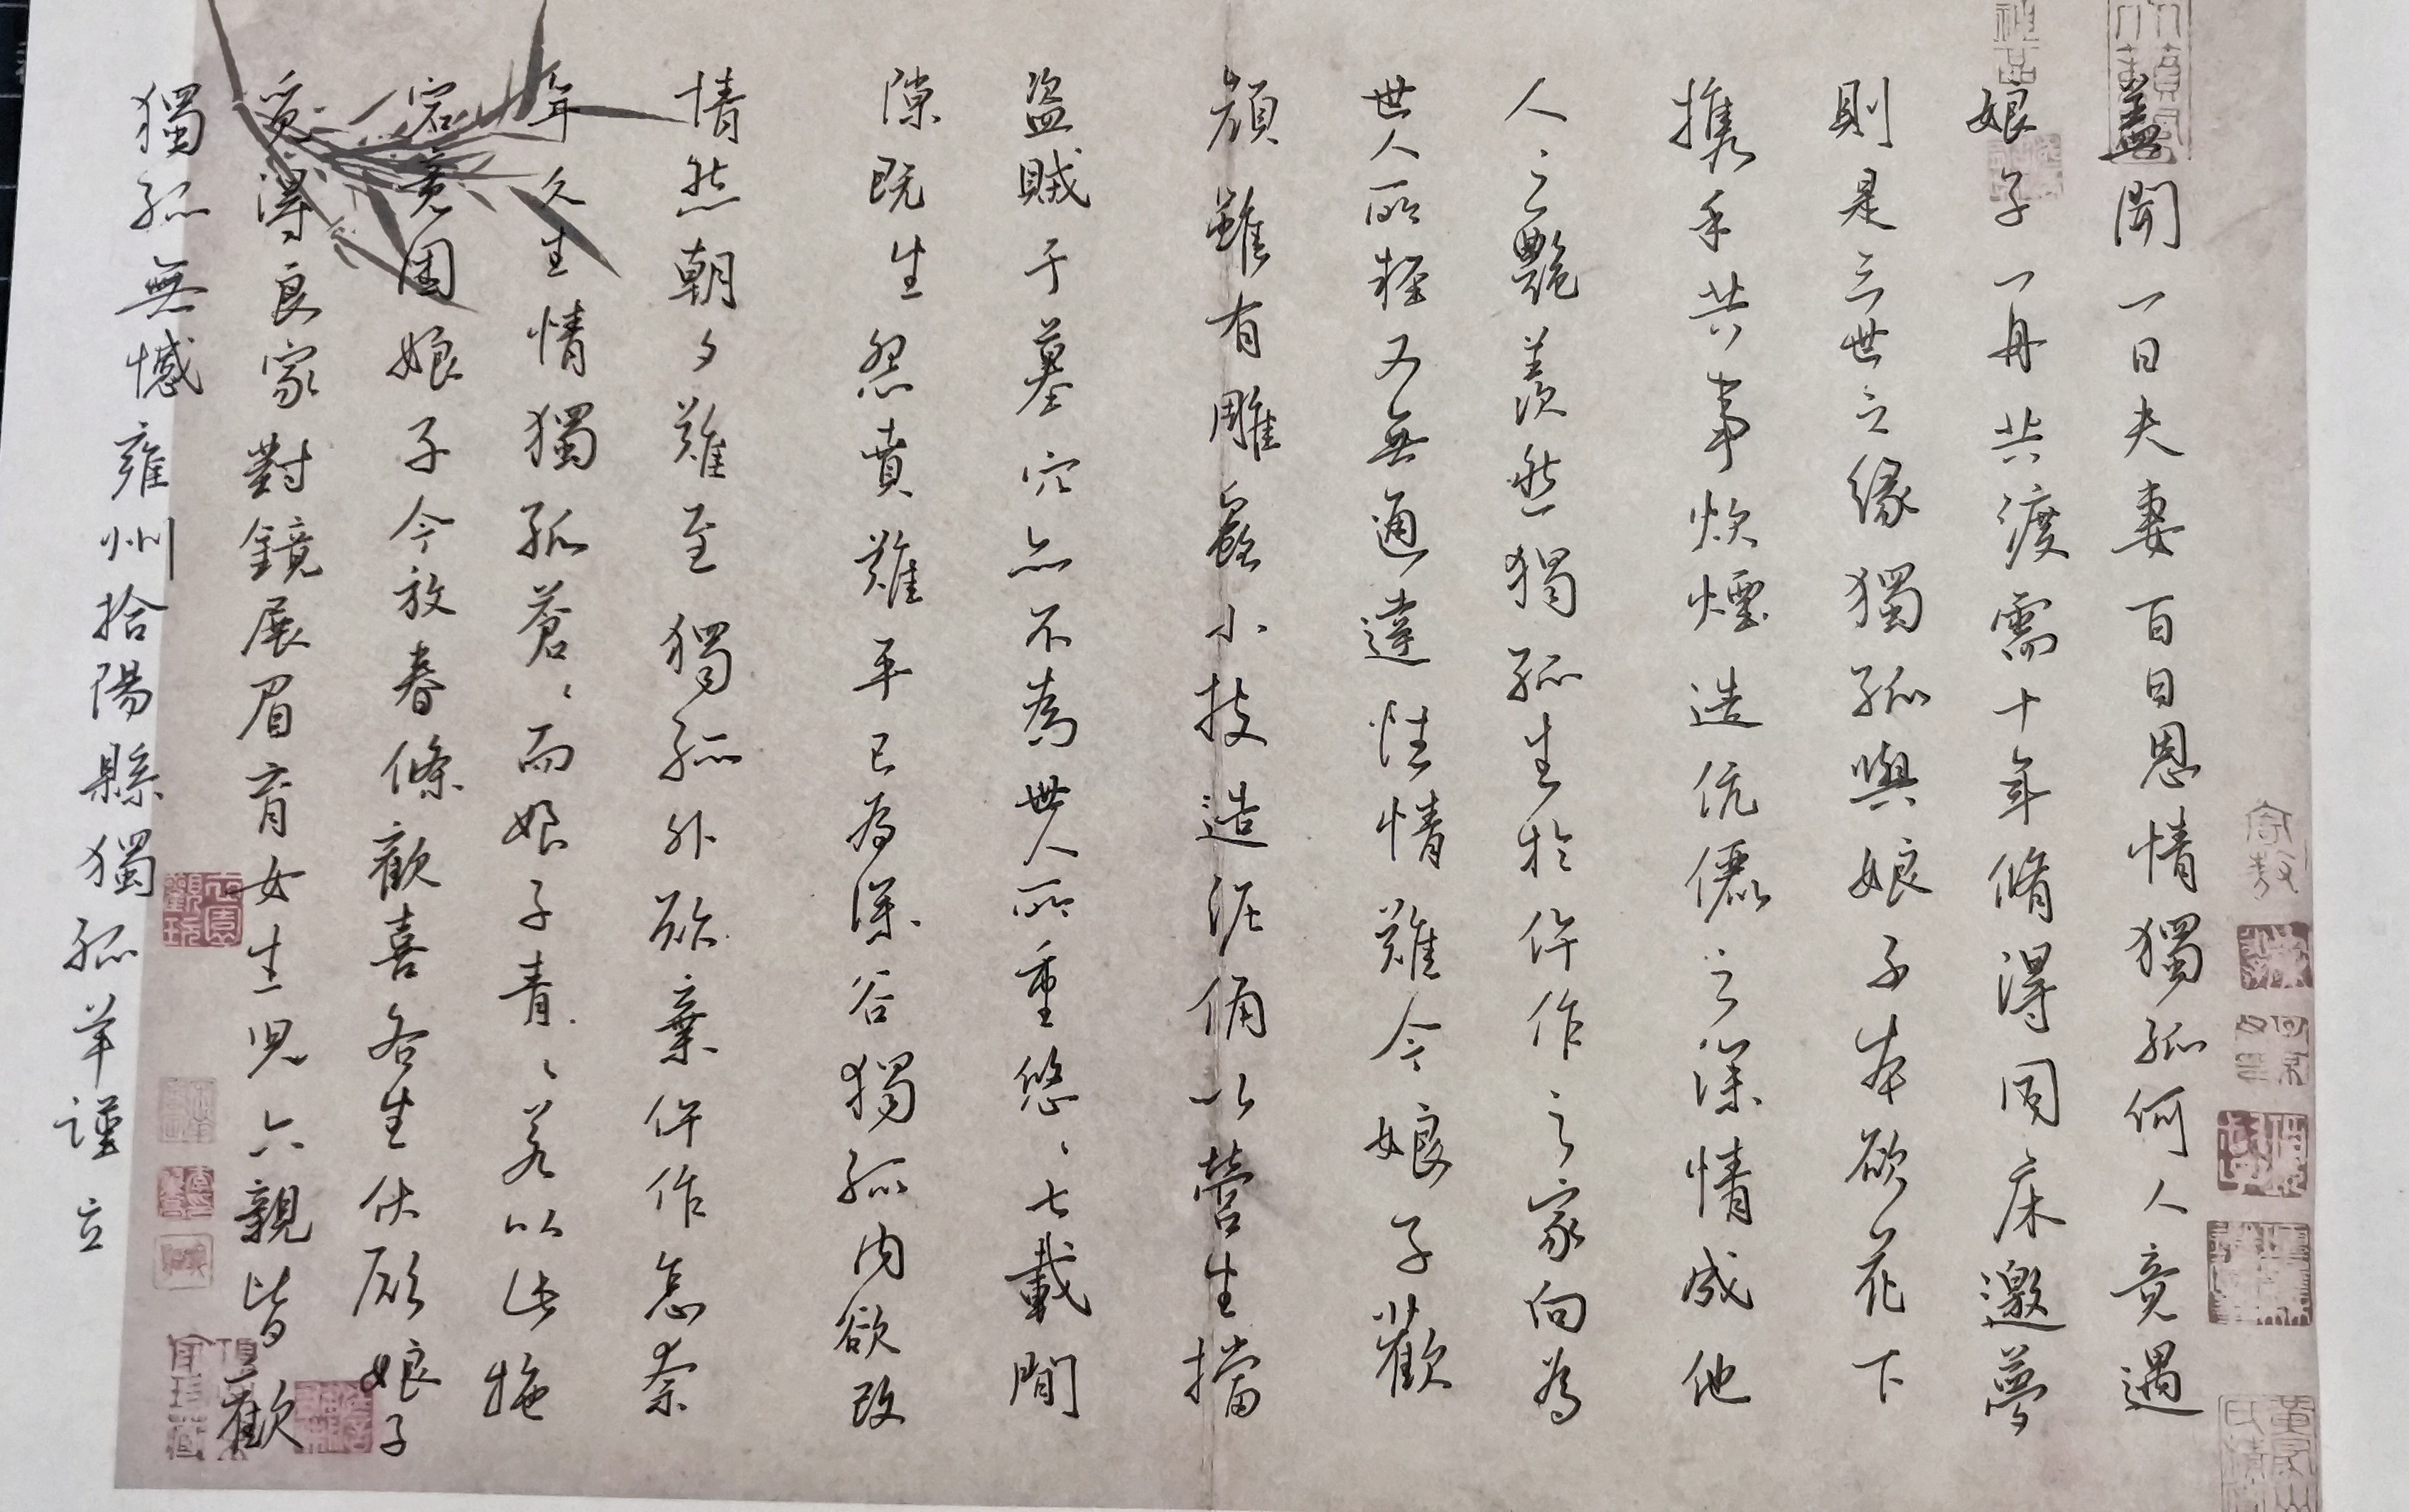 蓋聞一日夫妻百日恩情獨孤何人竟遇
娘子一舟共渡需十年脩得同床邀夢
則是三世之緣獨孤與娘子本欲花下
攜手共事炊煙造伉儷之深情成他
人之艷羨然獨孤生於仵作之家向為
世人所輕又無通達性情難令娘子歡
顏雖有雕鑿小技造泥俑以營生擋
盜賊于墓穴亦不為世人所重悠〻七載間
隙既生怨賁難平已為深谷獨孤內欲改
情然朝夕難至獨孤外欲棄仵作怎奈
年久生情獨孤蒼〻而娘子青〻若以此拖
宕竟困娘子今放春條歡喜各生伏願娘子
覓得良家對鏡展眉育女生兒六親皆歡
獨孤無憾雍州拾陽縣獨孤羊謹立